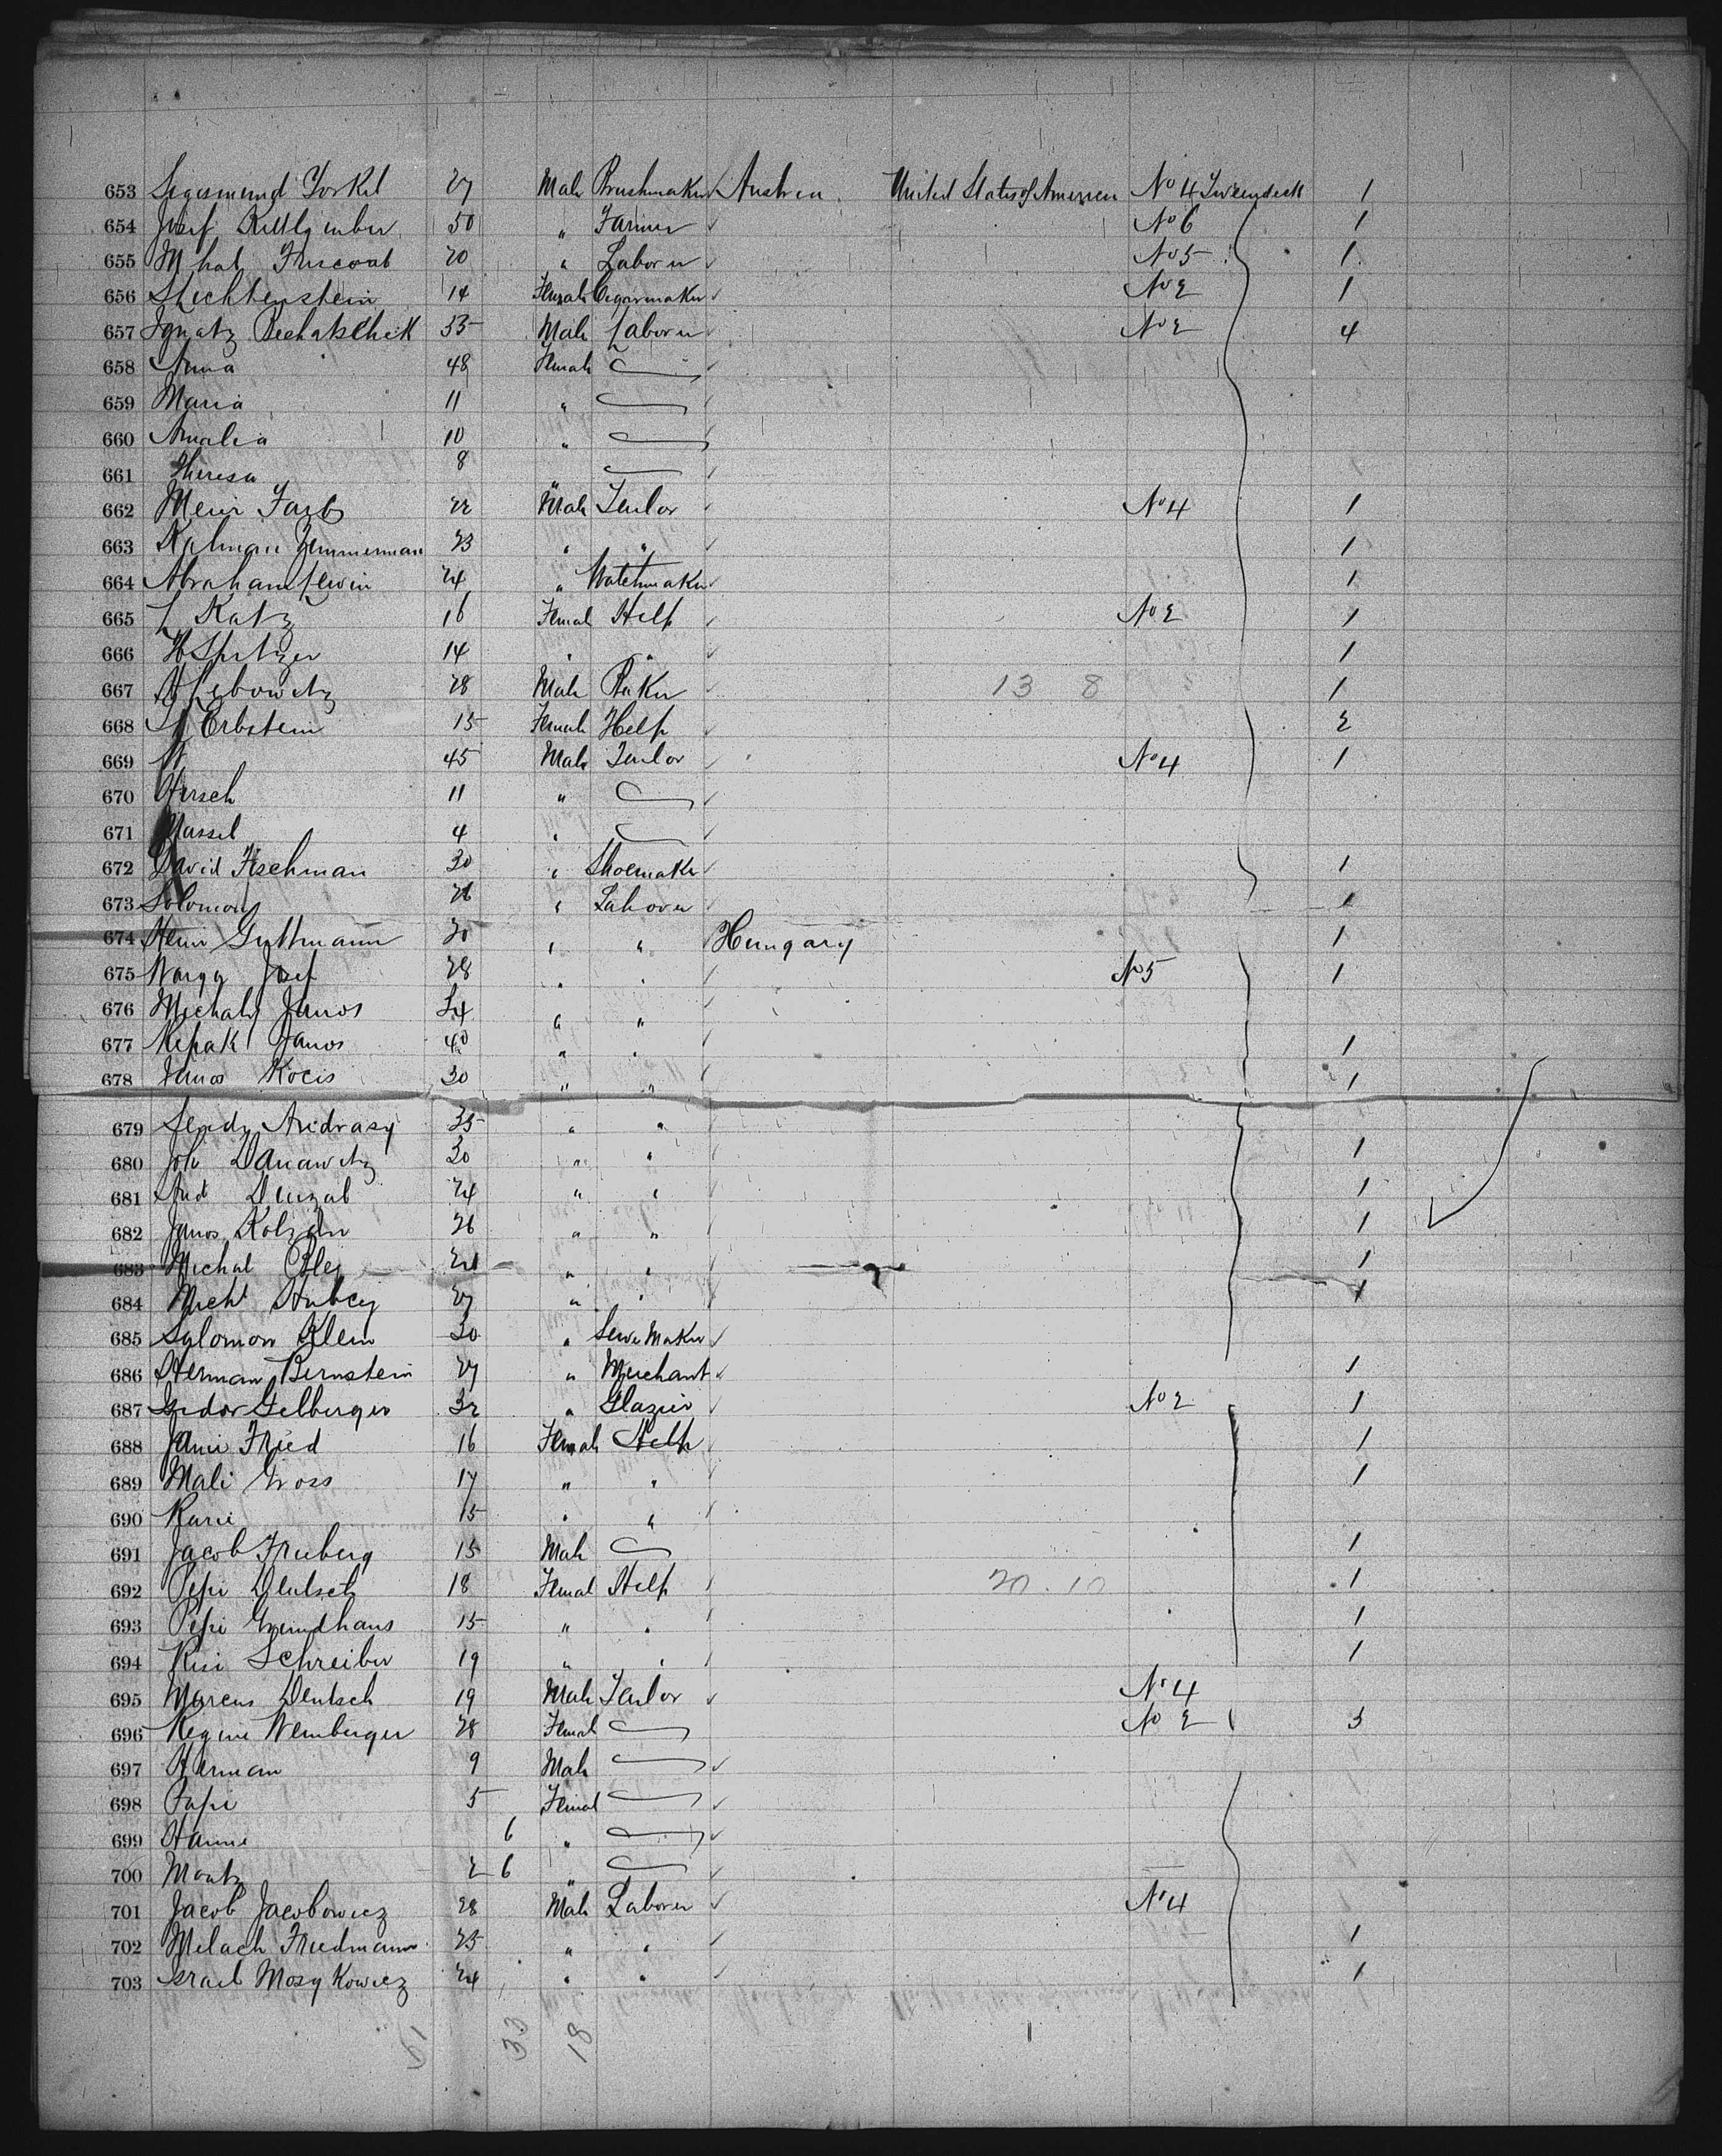 653 Sigismund Yorkel 27 Male Brushmaker Austria United States of America No 4 Tweendeck 1
654 Josef 50 " Farmer No 6 1
655 20 " Laborer No 5 1
656 S Lichtenstein 14 Female Cigarmaker No 2 1
657 Ignatz Bechatschek 55 Male Laborer No 2 4
658 Anna 48 Female
659 Maria 11 "
660 Amalia 10 "
661 Theresa 8 "
662 Meier Farb 22 Male Tailor No 4 1
663 Kalman Zimmerman 23 " " 1
664 Abraham Lewin 24 " Watchmaker 1
665 L Katz 16 Femal Help No 2 1
666 H Spitzer 14 " " 1
667 A Lebowitz 28 Male Baker 13 8 1
668 Erbstein 15 Female Help 2
669 45 Male Tailor No 4 1
670 Hersch 11 "
671 Massel 4 "
672 David Fischman 30 " Shoemaker 1
673 Solomon 26 " Laborer 1
674 Guttmann 30 " " Hungary 1
675 Warga Josef 28 " " No 5 1
676 Michaly Janos 34 " "
677 Repak Janos 40 " " 1
678 Janos Kocis 30 " " 1
679 Andrasy 35 " "
680 Joh Danawitz 30 " " 1
681 And 24 " " 1
682 Janos 26 " " 1
683 Michal " " 1
684 Michl 27 " " 1
685 Salomon Klein 30 " Maker
686 Herman Bernstein 27 " Merchant 1
687 Isidor Gelberger 32 " Glazier No 2 1
688 Fried 16 Female Help 1
689 Mali Gross 17 " " 1
690 15 " "
691 Jacob Frieberg 15 Male 1
692 Pepi Deutsch 18 Femal Help 20 10 1
693 Pepi Grundhaus 15 " " 1
694 Resi Schreiber 19 " " 1
695 Marcus Deutsch 19 Male Tailor No 4
696 Regine Weinberger 28 Femal No 2 3
697 Herman 9 Male
698 5 Femal
699 Hanni 6 "
700 2 6 "
701 Jacob Jacobowicz 28 Male Laborer No 4
702 Melach Friedmann 25 " " 1
703 Israel Moszkowicz 24 " " 1
51 33 18